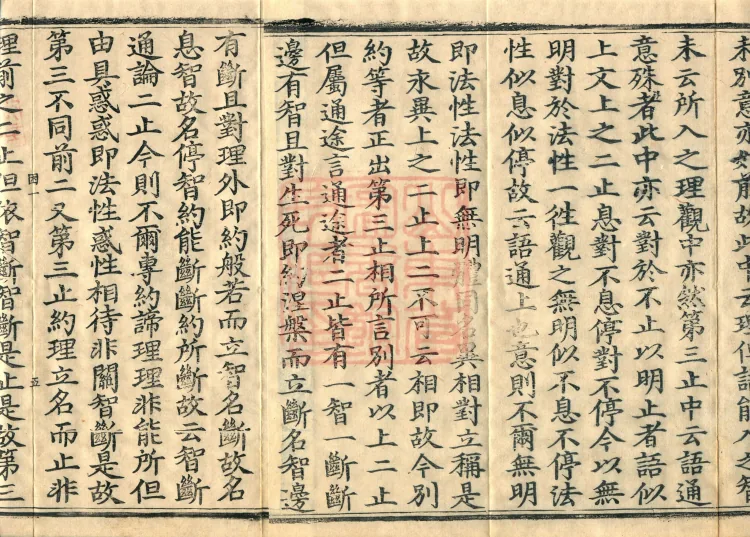 未云所入之理觀中亦然第三止中云語通
意殊者此中亦云對於不止以明止者語似
上文上之二止息對不息停對不停今以無
明對於法性一徃觀之無明似不息不停法
性似息似停故云語通上也意則不爾無明
即法性法性即無明體同名異相對立稱是
故永異上之二止上二不可云相即故今別
約等者正出第三止相所言別者以上二止
但屬通途言通途者二止皆有一智一斷斷
邊有智且對生死即約涅槃而立斷名智邊
有斷且對理外即約般若而立智名斷故名
息智故名停智約能斷斷約所斷故云智斷
通論二止今則不爾專約諦理理非能所但
由具惑惑即法性惑性相待非關智斷是故
第三不同前二又第三止約理立名而止非
五
理前之二止但依智斷智斷是止是故第三